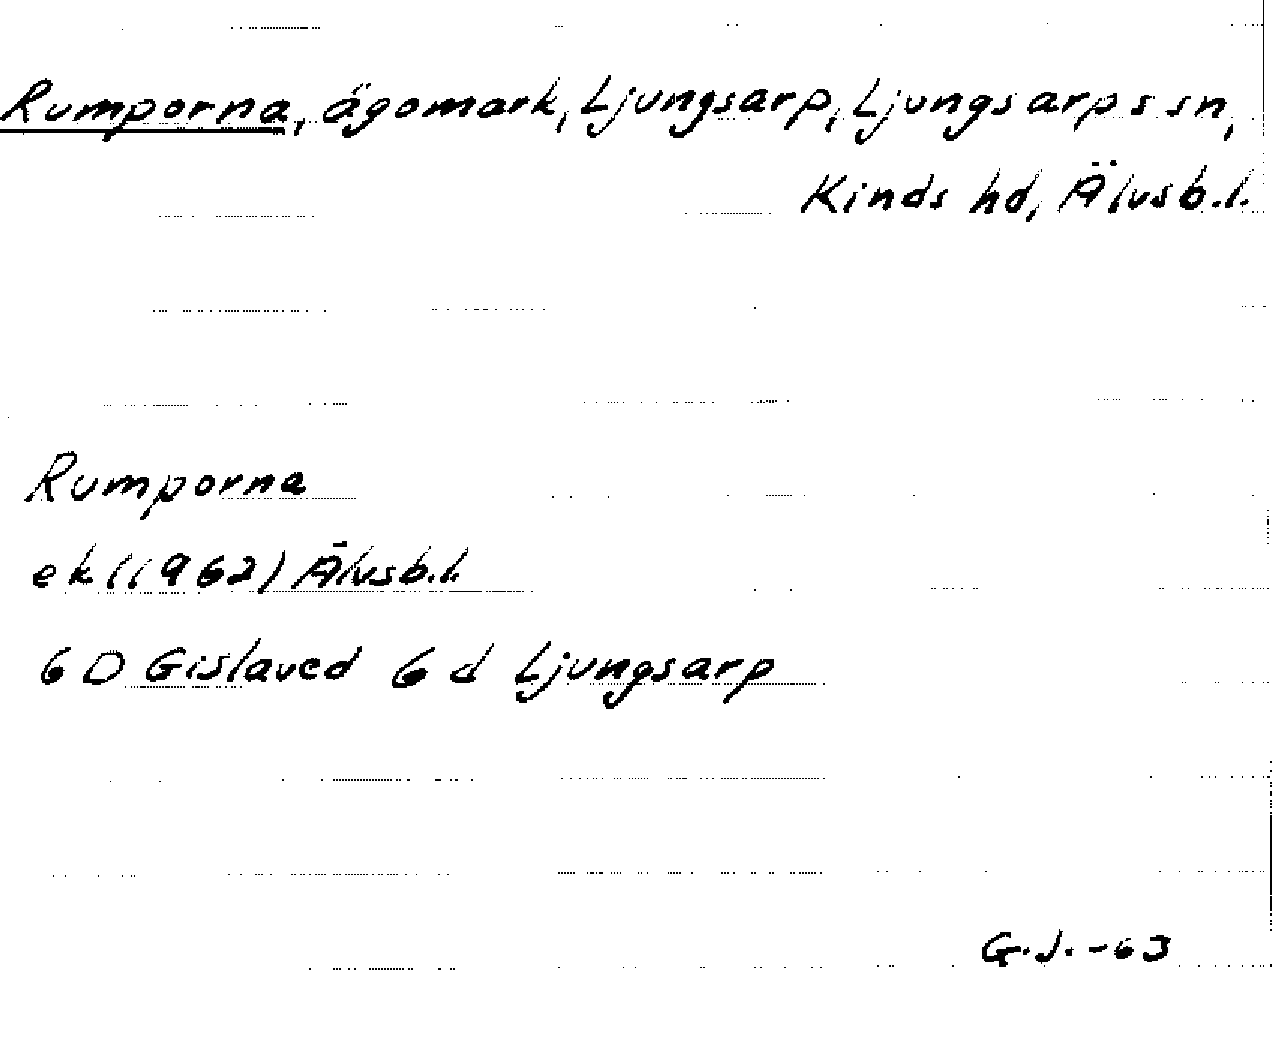 Rumporna, ägomark, Ljungsarp, Ljungsarps sn,
Kinds hd, Älvsb.l.
Rumporna
ek (1962) Älvsb.l.
6 D Gislaved 6 d Ljungsarp
G.J. -63